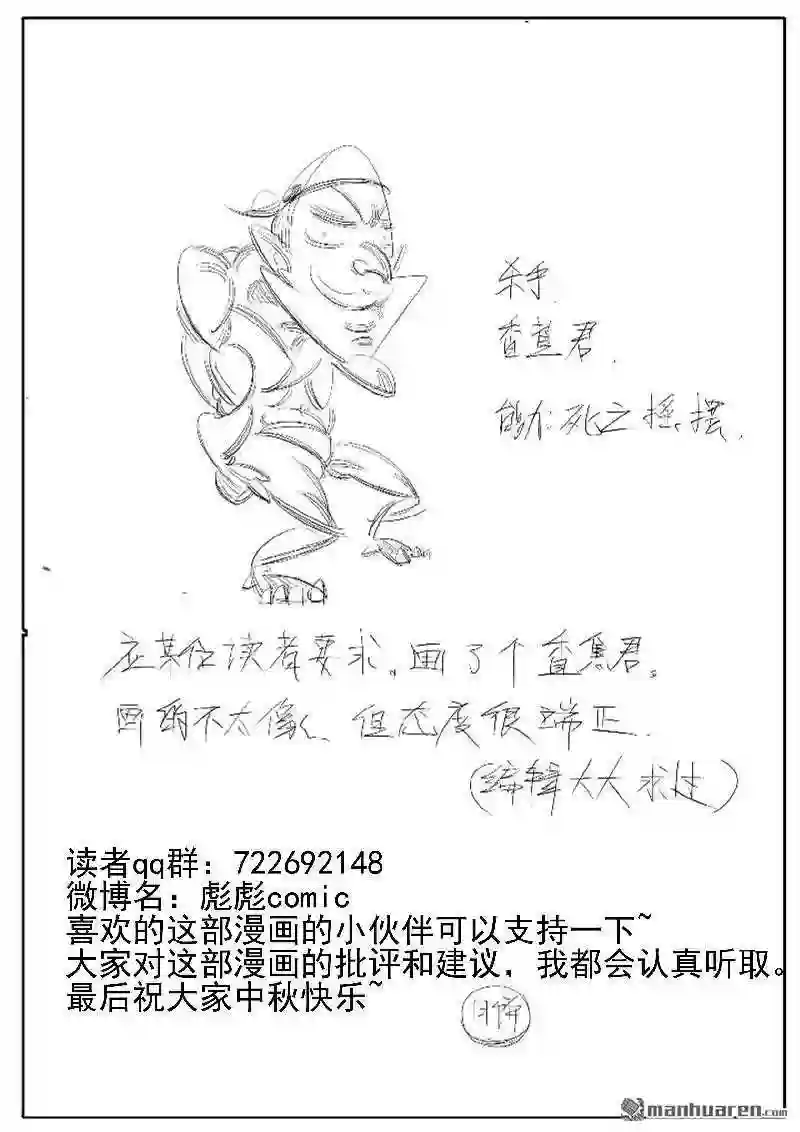 杀手
香蕉君.
能力:死之摇摆.
应某位读者要求,画了个香蕉君。
画的不太像、但态度很端正.
(编辑大大求过)
读者qq群：722692148
微博名：彪彪comic
喜欢的这部漫画的小伙伴可以支持一下~
大家对这部漫画的批评和建议，我都会认真听取。
最后祝大家中秋快乐~
月饼
manhuaren.com